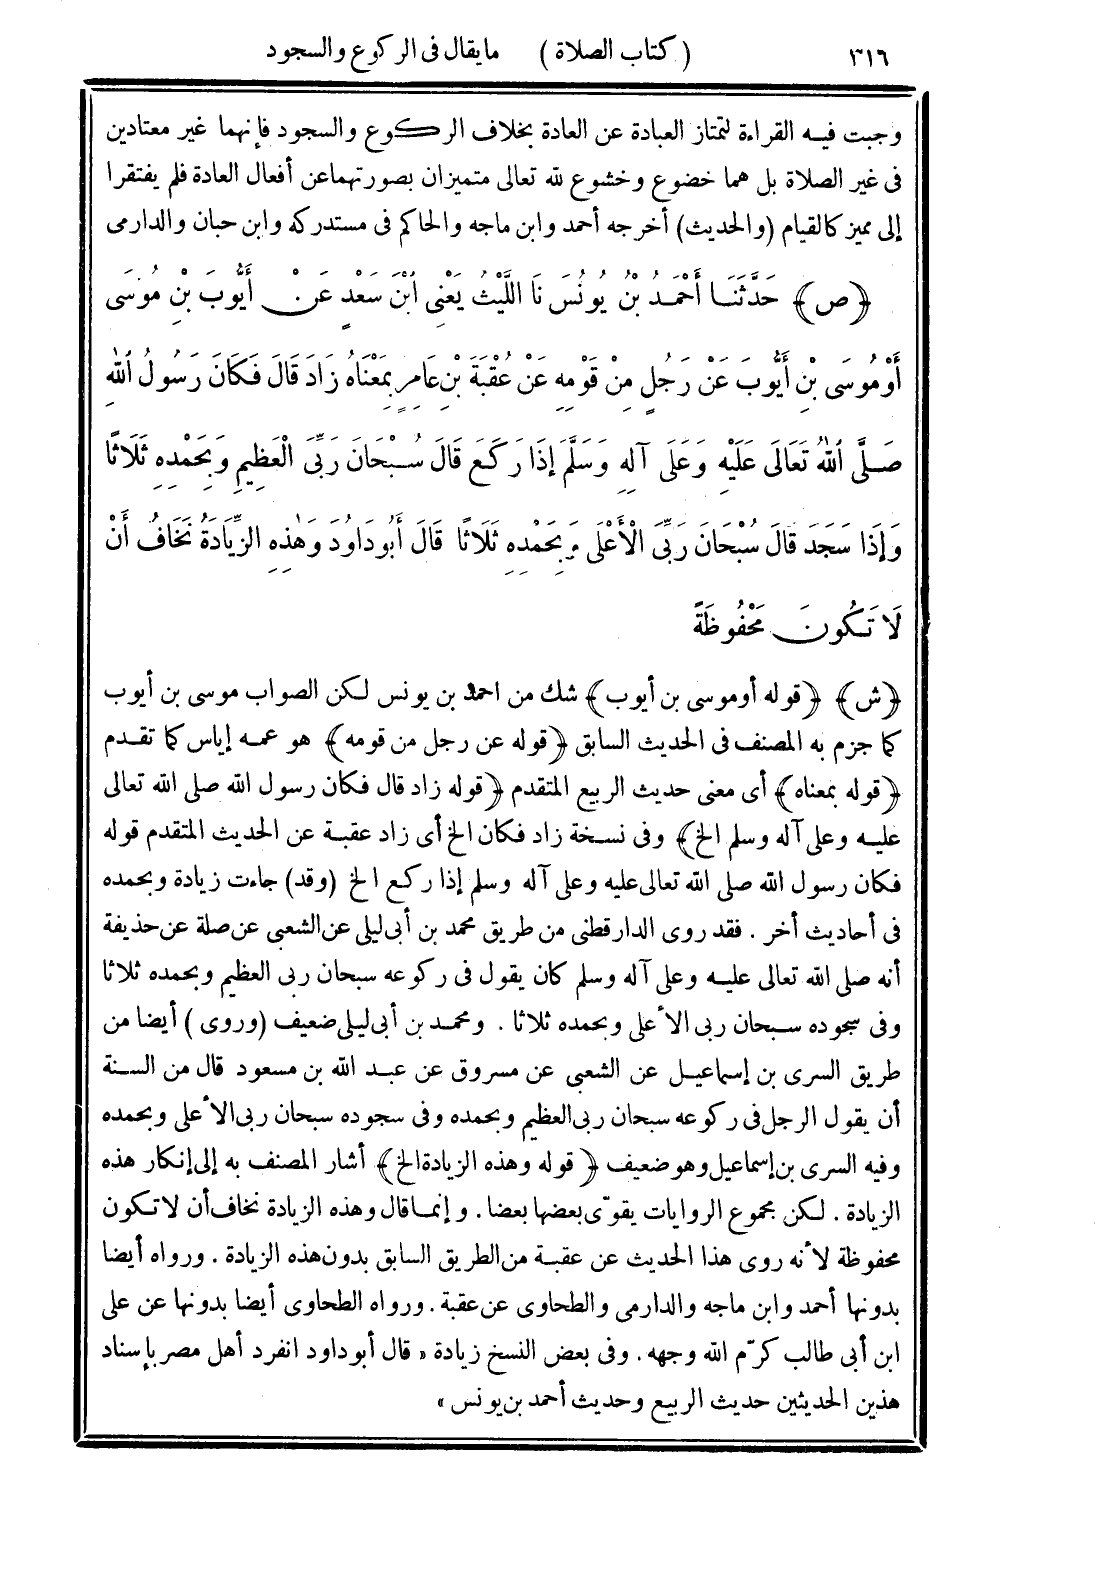 ٣١٦ ( كتاب الصلاة ) مايقال فى الركوع والسجود
وجبت فيه القراءة لتمتاز العبادة عن العادة بخلاف الركوع والسجود فإنهما غير معتادين
فى غير الصلاة بل هما خضوع وخشوع لله تعالى متميزان بصورتهما عن أفعال العادة فلم يفتقرا
إلى مميز كالقيام (والحديث) أخرجه أحمد وابن ماجه والحاكم فى مستدركه وابن حبان والدارمى
﴿ص﴾ حَدَّثَنَا أَحْمَدُ بْنُ يُونُسَ نَا اللَّيْثُ يَعْنِى ابْنَ سَعْدٍ عَنْ أَيُّوبَ بْنِ مُوسَى
أَوْمُوسَى بْنِ أَيُّوبَ عَنْ رَجُلٍ مِنْ قَوْمِهِ عَنْ عُقْبَةَ بْنِ عَامِرٍ بِمَعْنَاهُ زَادَ قَالَ فَكَانَ رَسُولُ اللهِ
صَلَّى اللهُ تَعَالَى عَلَيْهِ وَعَلَى آلِهِ وَسَلَّمَ إِذَا رَكَعَ قَالَ سُبْحَانَ رَبِّىَ الْعَظِيمِ وَبِحَمْدِهِ ثَلَاثًا
وَإِذَا سَجَدَ قَالَ سُبْحَانَ رَبِّىَ الْأَعْلَى وَبِحَمْدِهِ ثَلَاثًا قَالَ أَبُودَاوُدَ وَهٰذِهِ الزِّيَادَةُ نَخَافُ أَنْ
لَا تَكُونَ مَحْفُوظَةً
﴿ش﴾ ﴿قوله أوموسى بن أيوب﴾ شك من احمد بن يونس لكن الصواب موسى بن أيوب
كما جزم به المصنف فى الحديث السابق ﴿قوله عن رجل من قومه﴾ هو عمه إياس كما تقدم
﴿قوله بمعناه﴾ أى معنى حديث الربيع المتقدم ﴿قوله زاد قال فكان رسول الله صلى الله تعالى
عليه وعلى آله وسلم الخ﴾ وفى نسخة زاد فكان الخ أى زاد عقبة عن الحديث المتقدم قوله
فكان رسول الله صلى الله تعالى عليه وعلى آله وسلم إذا ركع الخ (وقد) جاءت زيادة وبحمده
فى أحاديث أخر . فقد روى الدارقطنى من طريق محمد بن أبى ليلى عن الشعبى عن صلة عن حذيفة
أنه صلى الله تعالى عليه وعلى آله وسلم كان يقول فى ركوعه سبحان ربى العظيم وبحمده ثلاثا
وفى سجوده سبحان ربى الأعلى وبحمده ثلاثا . ومحمد بن أبى ليلى ضعيف (وروى) أيضا من
طريق السرى بن إسماعيل عن الشعبى عن مسروق عن عبد الله بن مسعود قال من السنة
أن يقول الرجل فى ركوعه سبحان ربى العظيم وبحمده وفى سجوده سبحان ربى الأعلى وبحمده
وفيه السرى بن إسماعيل وهو ضعيف ﴿قوله وهذه الزيادة الخ﴾ أشار المصنف به إلى إنكار هذه
الزيادة . لكن مجموع الروايات يقوّى بعضها بعضا . وإنما قال وهذه الزيادة نخاف أن لا تكون
محفوظة لأنه روى هذا الحديث عن عقبة من الطريق السابق بدون هذه الزيادة . ورواه أيضا
بدونها أحمد وابن ماجه والدارمى والطحاوى عن عقبة . ورواه الطحاوى أيضا بدونها عن على
ابن أبى طالب كرّم الله وجهه . وفى بعض النسخ زيادة « قال أبوداود انفرد أهل مصر بإسناد
هذين الحديثين حديث الربيع وحديث أحمد بن يونس »